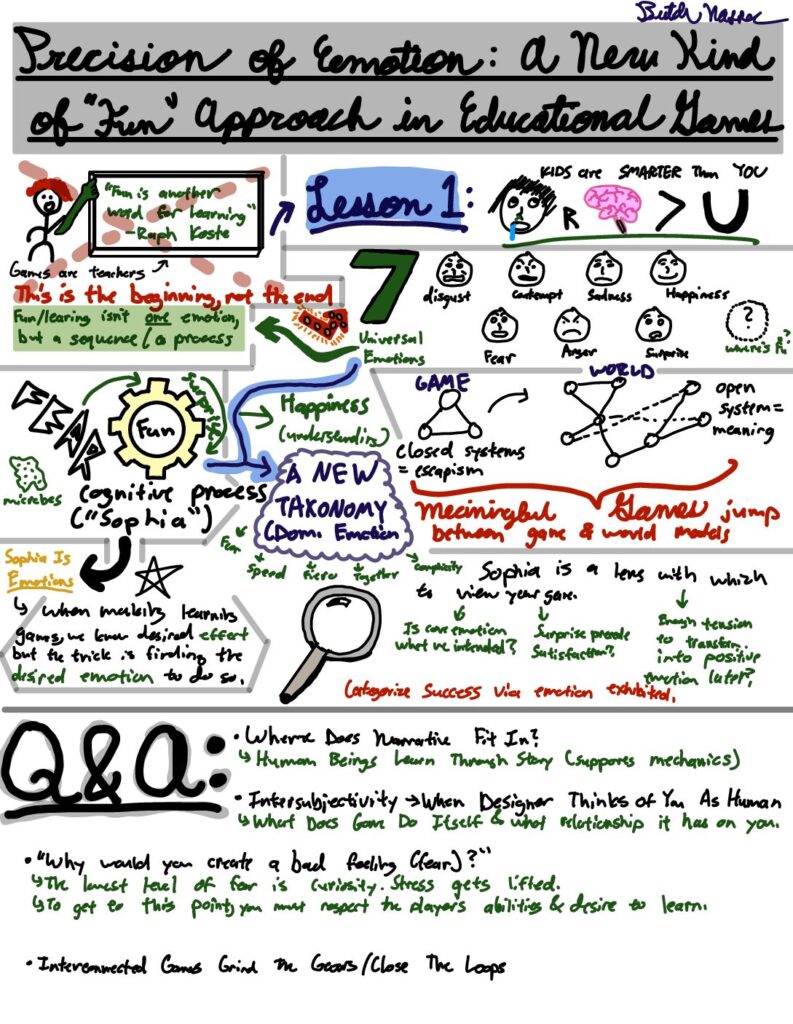 Precision of Eemotion: A New Kind
of "Fun" Approach in Educational Games
"Fun is another
word for learning"
- Raph Koste
Games are teachers
This is the beginning, not the end
Fun/learing isn't one emotion,
but a sequence/a process
Lesson 1:
KIDS are SMARTER Than YOU
R
> U
7
Universal
Emotions
disgust
Contempt
Sadness
Happiness
Fear
Anger
Surprise
?
where's Fu?
FEAR
Fun
Surprise
Happiness
(understanding)
microbes
cognitive process
("Sophia")
A NEW
TAKONOMY
(Dom. Emotion
Fun
Speed
Fiero
Together
Complicity
GAME
closed systems
= escapism
WORLD
open
system=
meaning
Meaningful Games jump
between game & world models
Sophia Is
Emotions
When making learning
games, we know desired effort
but the trick is finding the
desired emotion to do so.
Sophia is a lens with which
to view your game.
Is core emotion
what we intended?
Surprise precede
Satisfaction?
Enough tension
to transform
into positive
emotion later?
Categorize Success via emotion exhibited.
Q&A:
• Where Does Narrative Fit In?
Human Beings Learn Through Story (supports mechanics)
• Intersubjectivity → When Designer Thinks of You As Human
What Does Game Do Itself & what relationship it has on you.
• "Why would you create a bad feeling (fear)?"
The lowest level of fear is curiosity. Stress gets lifted.
To get to this point, you must respect the players abilities & desire to learn.
• Interconnected Games Grind The Gears/Close The Loops